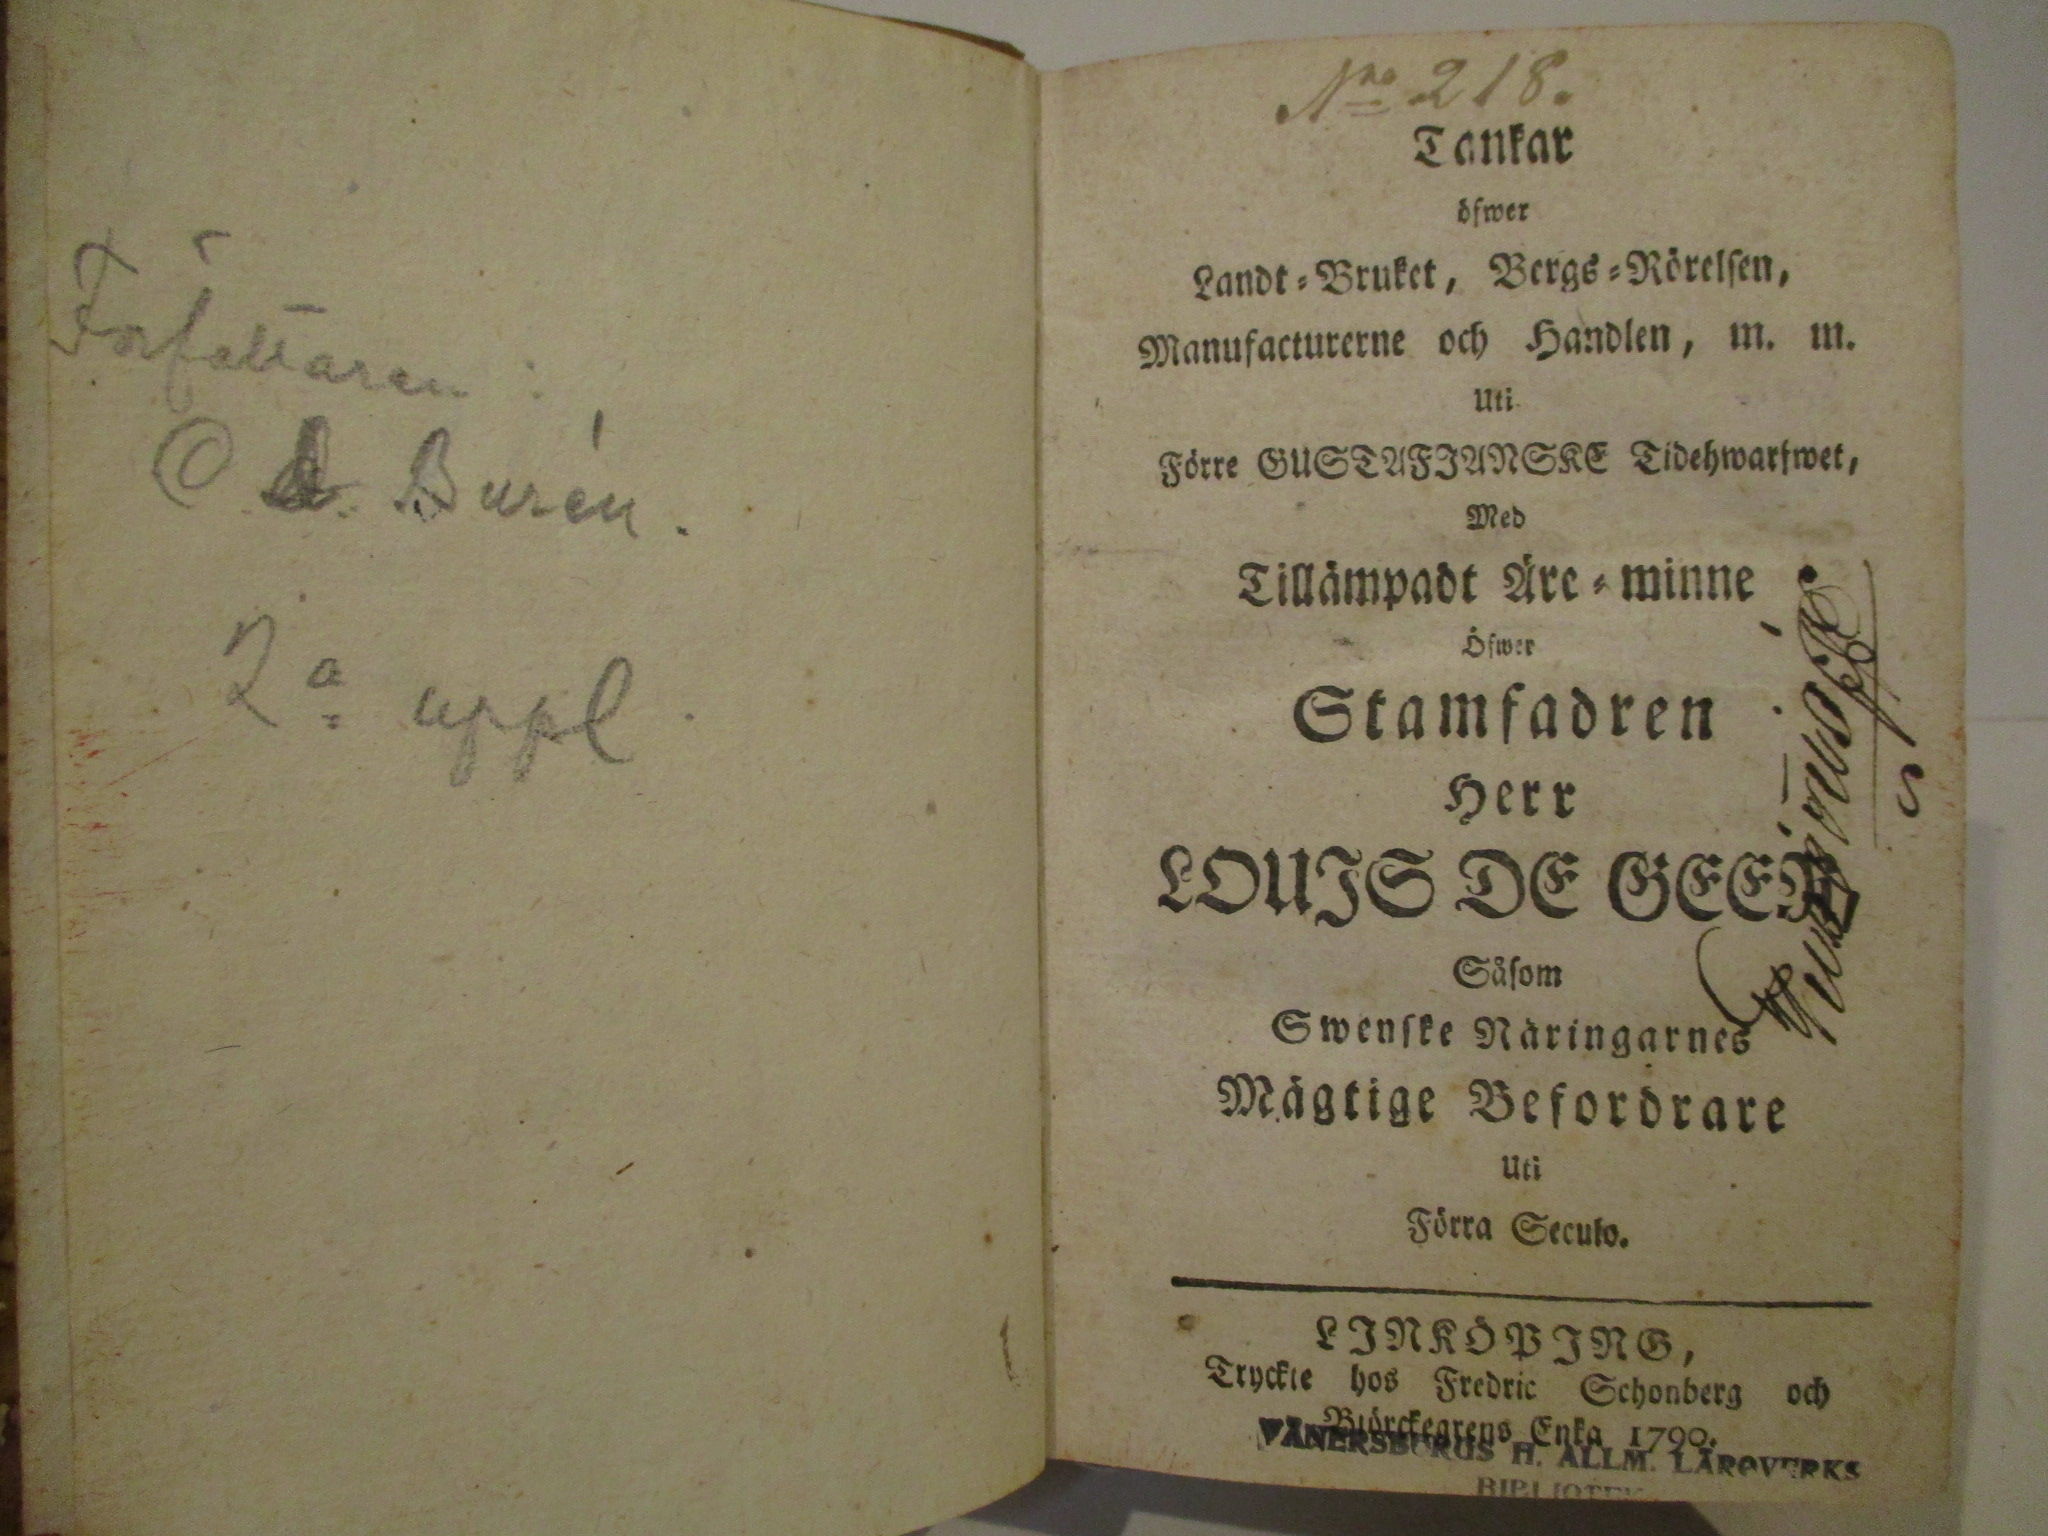 Författaren:
C Burén.
2a uppl.
Nro 218.
Tankar
öfwer
Landt-Bruket, Bergs-Rörelsen,
Manufacturerne och Handlen, m. m.
Uti
Förre GUSTAFIANSKE Tidehwarfwet,
Med
Tillämpadt Äre-minne
Öfwer
Stamfadren
Herr
LOUIS DE GEER
Såsom
Swenske Näringarnes
Mägtige Befordrare
Uti
Förra Seculo.
LINKÖPING,
Tryckte hos Fredric Schonberg och
Björckegrens Enka 1790.
VÄNERSBORGS H. ALLM. LÄROVERKS
BIBLIOTEK